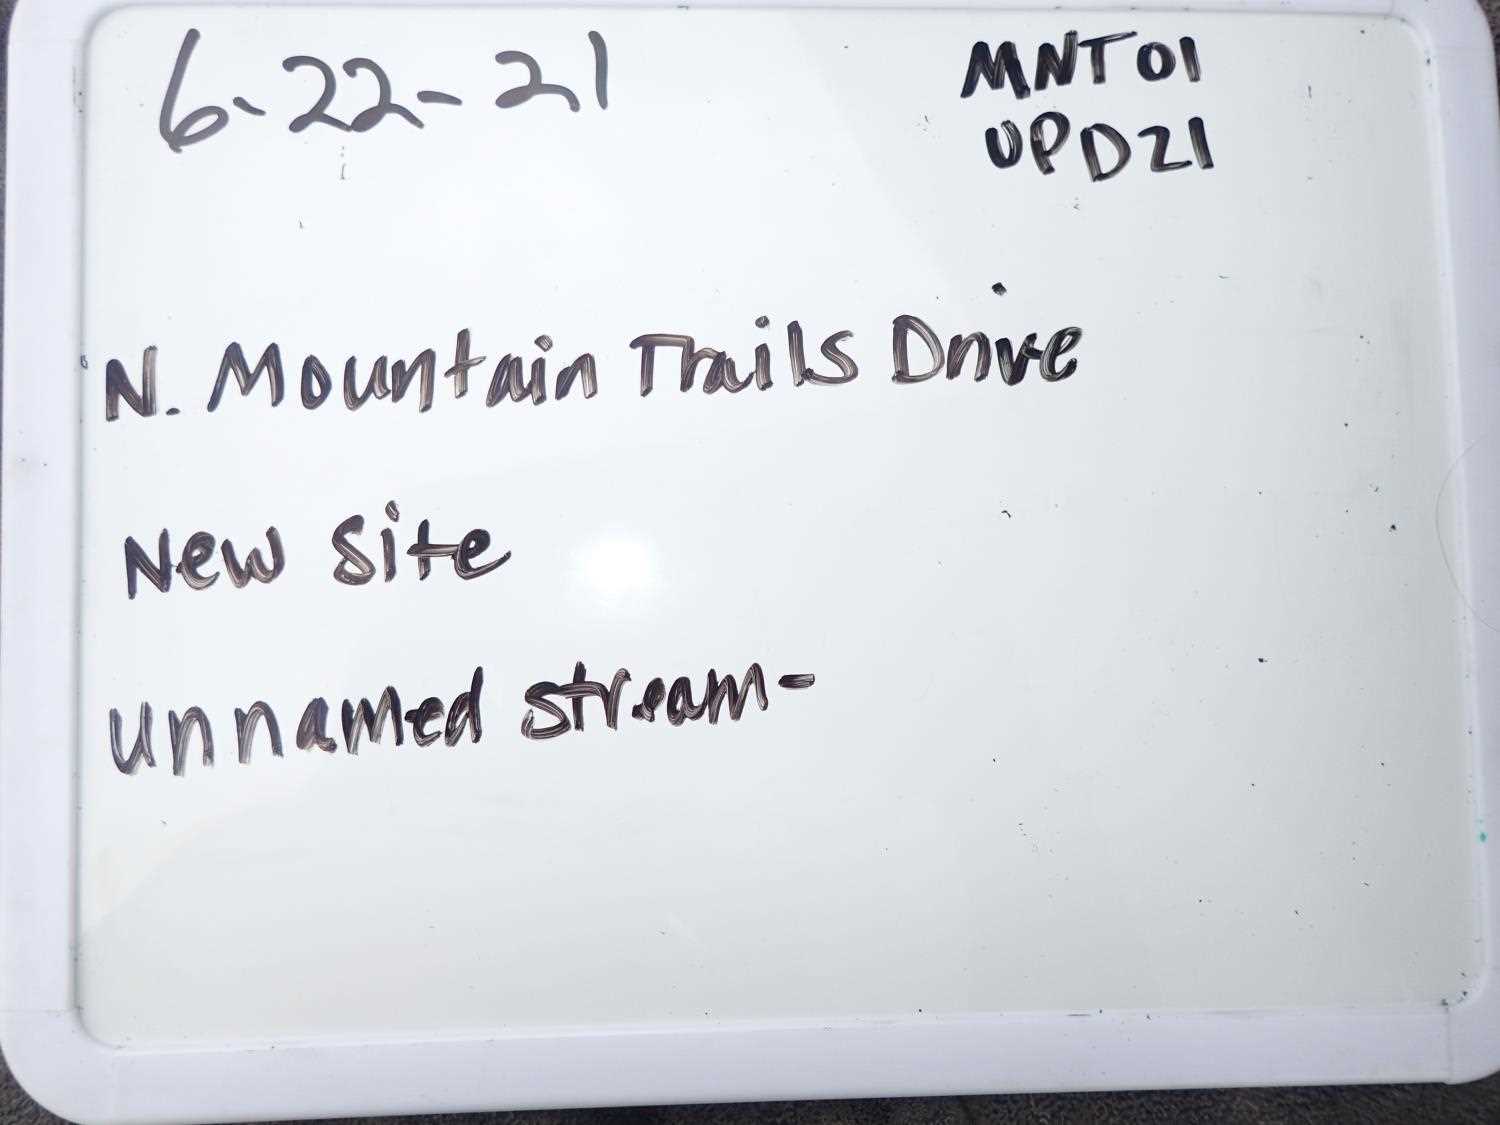 6-22-21
MNT01
UPD21
N. Mountain Trails Drive
New site
unnamed stream-